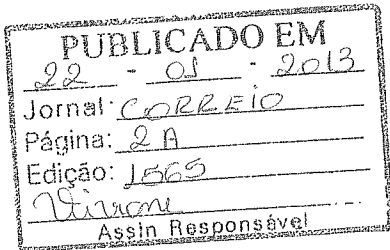 PUBLICADO EM
22 - 01 - 2013
Jornal: CORREIO
Página: 2 A
Edição: 1565
Assin Responsável